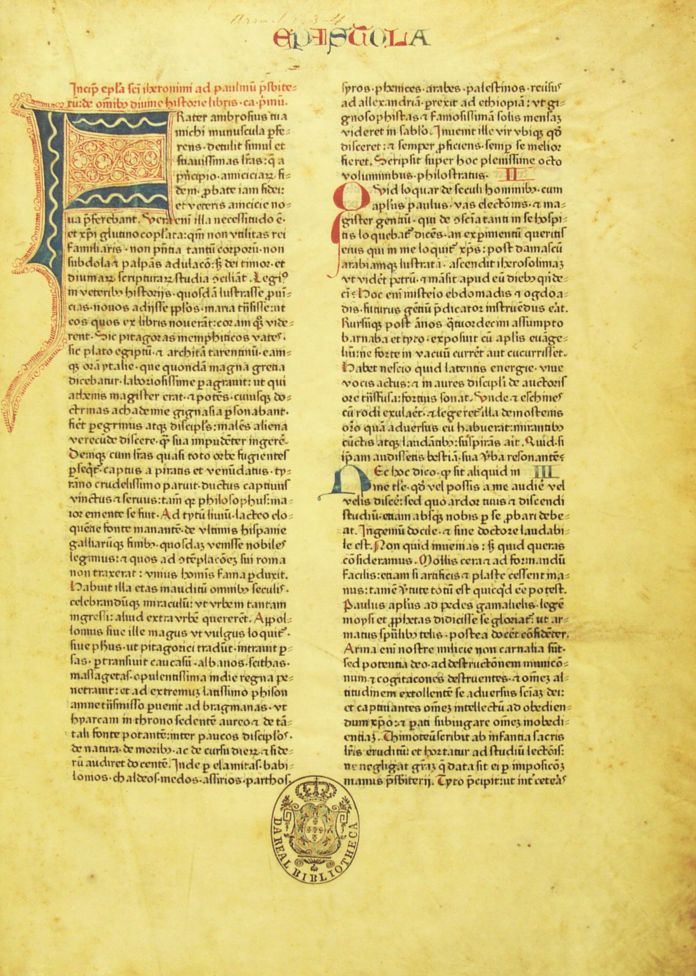 EPISTOLA
Incip̄ ep̄la sc̄i iheronimi ad paulinū p̄sbite⸗
rū: de om̄ibꝫ diuine historie libris · ca · p̄mū.
FRater ambrosius tua
michi munuscula p̄fe⸗
rens · detulit simul et
suauissimas lr̄as: q̄ a
p̄ncipio amiciciaꝝ · fi⸗
dem · ꝓbate iam fidei:
et veteris amicicie no⸗
ua p̄ferebant. Vera eni illa necessitudo ē ·
et xp̄i glutino copl̄ata: qm̄ non vtilitas rei
familiaris · non p̄ntia tantū corporū · non
subdola ⁊ palpās adulacō: sꝫ dei timor · et
diuinaꝝ scripturaꝝ studia ꝯciliāt. Legimꝰ
in veteribꝫ historijs · quosdā lustrasse ꝓuī⸗
cias · nouos adijsse pp̄los · maria trāsisse: ut
eos quos ex libris nouerāt: coram qꝫ vide⸗
rent. Sic pitagoras memphiticos vates ·
sic plato egiptū · ⁊ architā tarentinū · eam⸗
qꝫ orā ytalie · que quondā magna grecia
dicebatur · laboriosissime ꝑagrauit: ut qui
athenis magister erat · ⁊ potēs · cuiusqꝫ do⸗
ctrinas achademie gignasia ꝑsonabant ·
fieret ꝑegrinus atqꝫ discipl̄s: malēs aliena
verecūde discere · qꝫ sua impudēter ingerē.
Deniqꝫ cum lr̄as quasi toto orbe fugientes
ꝑseqr̄et · captus a piratis et venūdatus · ty⸗
rāno crudelissimo paruit · ductus captiuus
vinctus ⁊ seruus: tam̄ qꝫ philosophꝰ: ma⸗
ior emente se fuit. Ad tytū liuiū · lacteo elo⸗
quēcie fonte manantē · de vltimis hispanie
galliarūqꝫ finibꝫ · quosdaꝫ venisse nobiles
legimus: ⁊ quos ad ꝯtēplacōeꝫ sui roma
non traxerat: vnius hom̄is fama ꝑduxit.
Habuit illa etas inauditū om̄ibꝫ seculis ·
celebrandūqꝫ miraculū: ut vrbem tantam
ingressi: aliud extra vrbē quererēt. Appol⸗
lonius siue ille magus vt vulgus loquit̄ ·
siue ph̄us · ut pitagorici tradūt · intrauit ꝑ⸗
sas · ꝑtransiuit caucasū · albanos · scithas ·
massagetas · opulentissima indie regna pe⸗
netrauit: et ad extremuꝫ latissimo phison
amne trāsmisso ꝑuenit ad bragmanas · vt
hyarcam in throno sedentē aureo · ⁊ de tā⸗
tali fonte potantē: inter paucos discipl̄os ·
de natura · de moribꝫ · ac de cursu dieꝝ · ⁊ side⸗
rū audiret docentē. Inde ꝑ elamitas · babi⸗
lonios · chaldeos · medos · assirios · parthos ·
syros · phenices · arabes · palestinos · reuersꝰ
ad allexandriā: ꝑrexit ad ethiopiā: vt gi⸗
gnosophistas · ⁊ famosissimā solis mensaꝫ
videret in sablo. Inuenit ille vir vbiqꝫ qd̄
disceret: ⁊ semper ꝓficiens · semꝑ se melior
fieret. Scripsit super hoc plenissime octo
voluminibus · philostratus. II
QUid loquar de seculi hominibꝫ · cum
apl̄us paulus · vas electōnis · ⁊ ma⸗
gister gentiū · qui de ꝯsciā tanti in se hospi⸗
tis loquebat̄ dicēs · an exꝑimentū queritis
eius qui in me loquit̄ xp̄s: post damascū
arabiamqꝫ lustratā · ascendit iherosolimaꝫ
vt videt̄ petrū · ⁊ māsit apud eū diebꝫ qn̄de⸗
cī: Hoc eni misterio ebdomadis ⁊ ogdoa⸗
dis · futurus gentiū p̄dicator instruendus eāt.
Rursūqꝫ post ānos q̄tuordecim assumpto
barnaba et tyto · exposuit cū aplis euāge⸗
liū: ne forte in vacuū currēt aut cucurrisset.
Habet nescio quid latentis energie · viue
vocis actus: ⁊ in aures discipuli de auctoris
ore trāsfusa: fortius sonat. Vnde ⁊ eschines
cū rodi exularet · ⁊ legeret̄ illa demostenis
orō quā aduersus eū habuerat: mirantibꝫ
cūctis atqꝫ laudātibꝫ: suspirans ait. Quid · si
ip̄am audissetis bestiā: sua v̄ba resonantē:
NEc hoc dico · qꝫ sit aliquid in III
me tale · qd̄ vel possis a me audire vel
velis discē: sed quo ardor tuus ⁊ discendi
studiū · etiam absqꝫ nobis ꝑ se ꝓbari debe⸗
at. Ingeniū docile · ⁊ sine doctore laudabi⸗
le est. Non quid inuenias: sꝫ quid queras
cōsideramus. Mollis cera ⁊ ad formandū
facilis: etiam si artificis ⁊ plaste cessent ma⸗
nus: tamē v̄tute totū est quicqd̄ eē potest.
Paulus apl̄us ad pedes gamalielis · legē
moysi et ꝓph̄etas didicisse se gloriat̄: ut ar⸗
matus spūlibꝫ telis · postea docēt cōfidēter.
Arma eni nostre milicie non carnalia sūt ·
sed potentia deo · ad destructōnem municō⸗
num ⁊ cogitacōes destruentes · ⁊ om̄eꝫ al⸗
titudinem extollentē se aduersus sciaꝫ dei:
et captiuantes om̄eꝫ intellectū ad obedien⸗
dum xp̄o: ⁊ ꝑati subiugare omneꝫ inobedi⸗
entiaꝫ. Thimoteū scribit ab infantia sacris
lr̄is eruditū: et hortatur ad studiū lectōnis:
ne negligat gr̄aꝫ q̄ data sit ei ꝑ imposicōeꝫ
manus p̄sbiterij. Tyto p̄cipit: ut int̄ ceteras
DA REAL BIBLIOTHECA